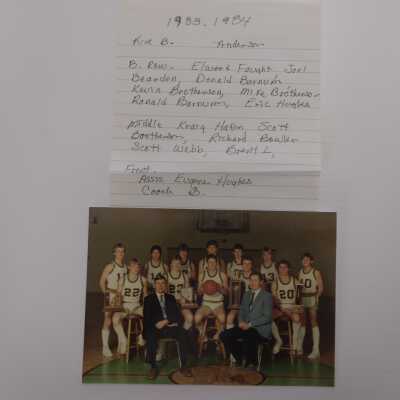 1983-1984
Kirk B. Anderson
B. Row - Elwood Faught Joel
Bearden, Donald Barnum
Kevin Brothenson, Mike Brothenson
Ronald Barnum, Eric Hughes
Middle Kraig Hafen, Scott
Brothenson, Richard Bowler
Scott Webb, Brent L,
Front.
Asst. Eugene Hughes
Coach B.
22
20